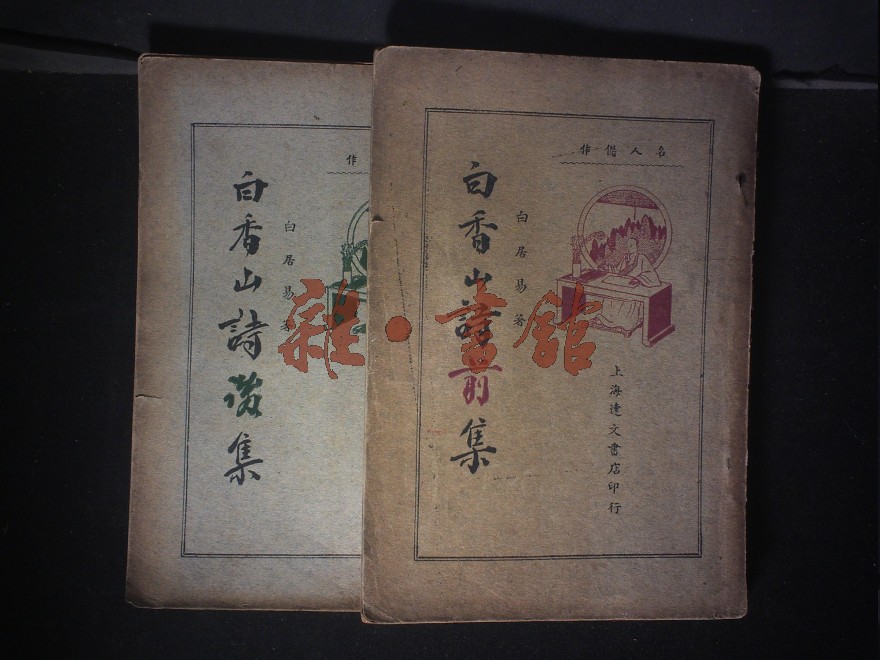 作
白居易著
白香山詩後集
名人傑作
白居易著
白香山詩前集
上海達文書店印行
雜·書館